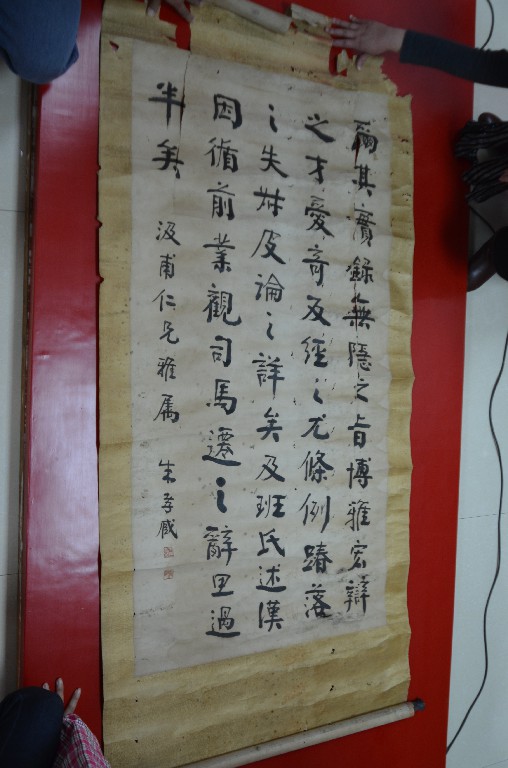 爾其實錄無隱之旨博雅宏辯
之才愛奇反經之尤條例踳落
之失叔皮論之詳矣及班氏述漢
因循前業觀司馬遷之辭思過
半矣
汲甫仁兄雅属 朱孝臧